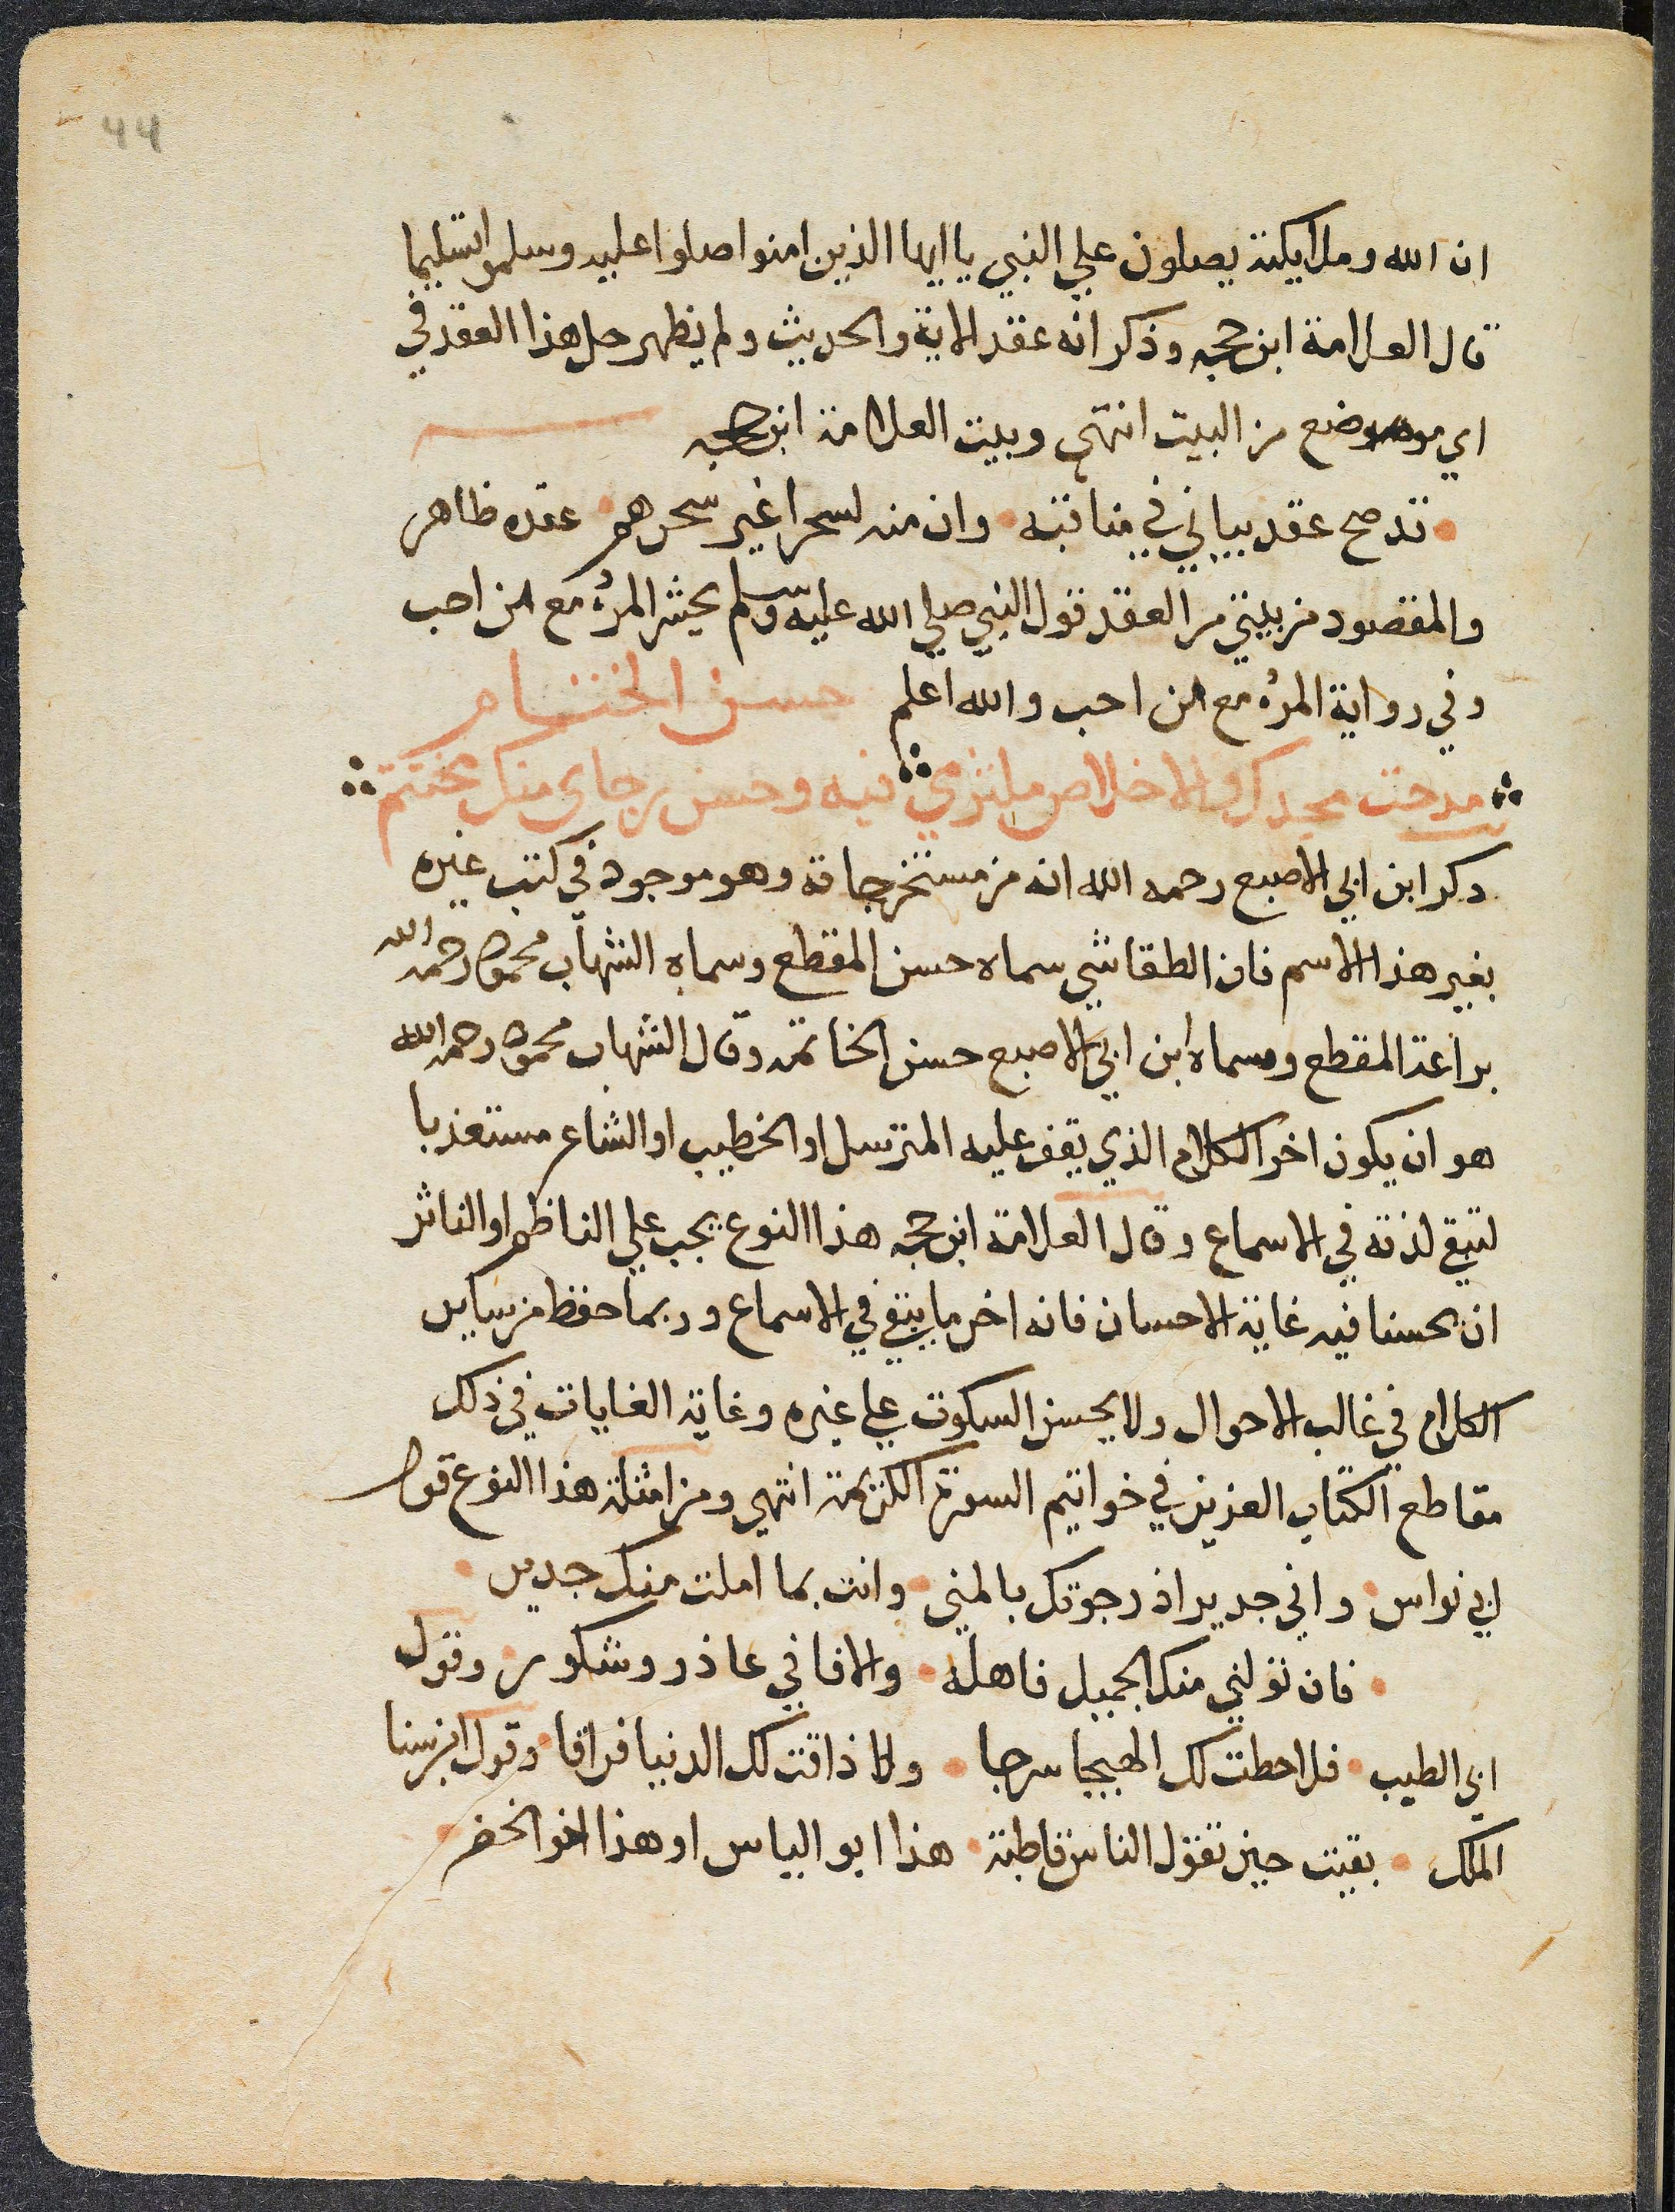 44
ان الله وملايكته يصلون علي النبي يا ايها الذين امنوا صلوا عليه وسلموا تسليما
قال العلامة ابن حجه وذكر انه عقد الاية والحديث ولم يظهر حل هذا العقد في
اي موضع من البيت انتهي وبيت العلامة ابن حجه
قد صح عقد بياني في مناقبه وان منه لسحرا غير سحرهم عقده ظاهر
والمقصود من بيتي من العقد قول النبي صلي الله عليه وسلم يحشر المرء مع من احب
وفي رواية المرء مع من احب والله اعلم حسن الختام
مدحت مجدك والاخلاص ملتزمي فيه وحسن رجاي منك مختتم
ذكر ابن ابي الاصبع رحمه الله انه من مستخرجاته وهو موجود في كتب غيره
بغير هذا الاسم فان الطقاشي سماه حسن المقطع وسماه الشهاب محمود رحمه الله
براعة المقطع وسماه ابن ابي الاصبع حسن الخاتمه وقال الشهاب محمود رحمه الله
هو ان يكون اخر الكلام الذي يقف عليه المترسل او الخطيب او الشاعر مستعذبا
لتبقي لذته في الاسماع وقال العلامة ابن حجه هذا النوع يجب علي الناظم او الناثر
ان يحسنا فيه غاية الاحسان فانه اخر ما يبقي في الاسماع وربما حفظ من ساير
الكلام في غالب الاحوال ولا يحسن السكوت علي غيره وغاية الغايات في ذلك
مقاطع الكتاب العزيز في خواتيم السورة الكريمة انتهي ومن امثلة هذا النوع قول
ابي نواس واني جدير اذ رجوتك بالمني وانت بما املت منك جدير
فان تولني منك الجميل فاهله والا فاني عاذر وشكور وقول
ابي الطيب فلا حطت لك الهيجا سرجا ولا ذاقت لك الدنيا فراقا وقول ابن سنا
الملك بقيت حين تقول الناس قاطبة هذا ابو الياس او هذا اخو الخضر